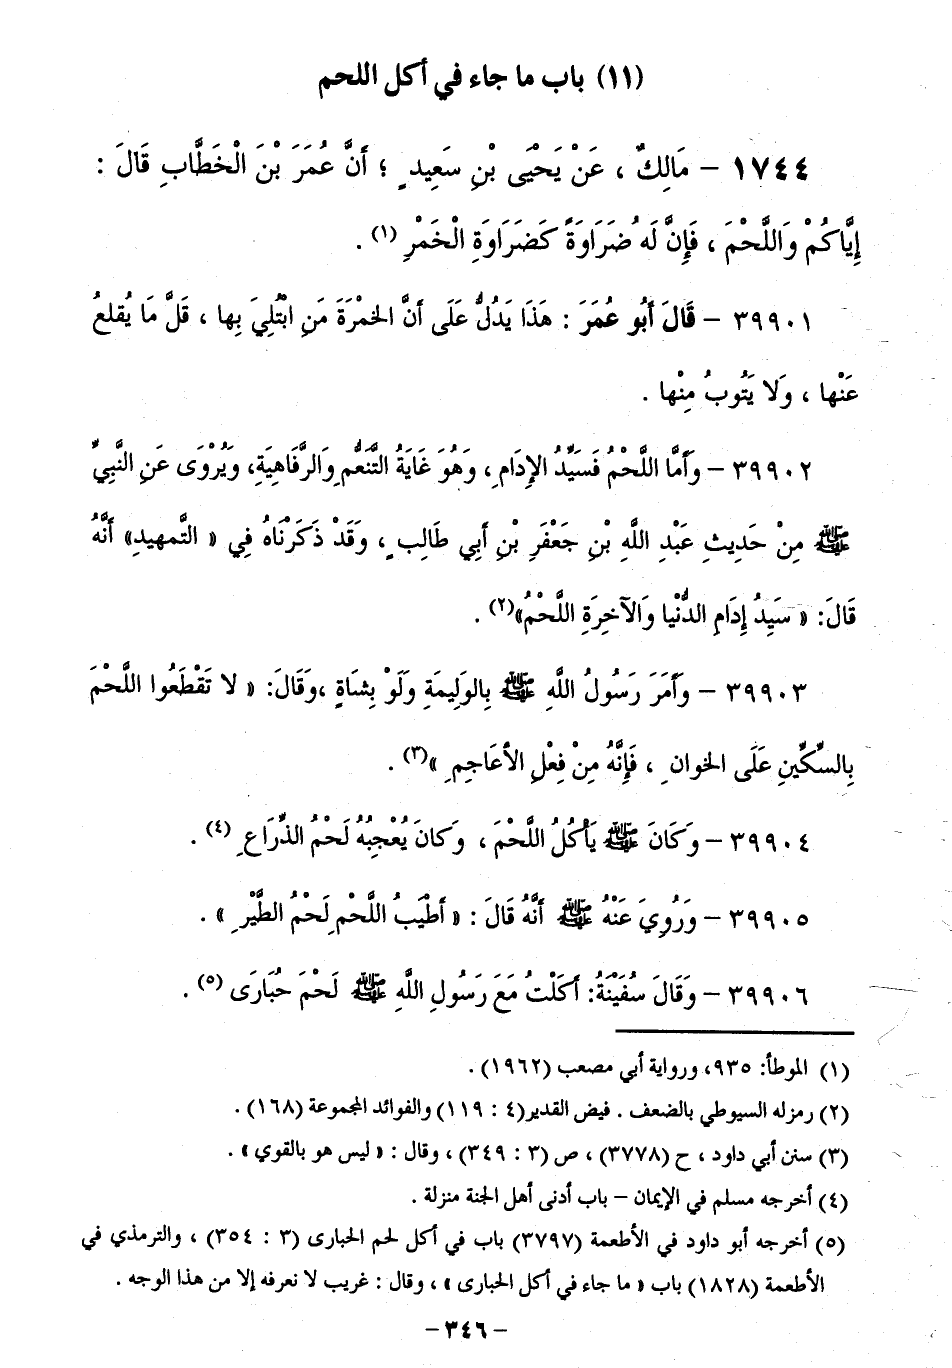 (١١) باب ما جاء في أكل اللحم
١٧٤٤ – مَالِكٌ ، عَنْ يَحْيَى بْنِ سَعِيدٍ ؛ أَنَّ عُمَرَ بْنَ الْخَطَّابِ قَالَ :
إِيَّاكُمْ وَاللَّحْمَ ، فَإِنَّ لَهُ ضَرَاوَةً كَضَرَاوَةِ الْخَمْرِ (١) .
٣٩٩٠١ – قَالَ أَبُو عُمَرَ : هَذَا يَدُلُّ عَلَى أَنَّ الخَمْرَةَ مَنِ ابْتُلِيَ بِها ، قَلَّ مَا يُقلعُ
عَنْها ، وَلا يَتُوبُ مِنْها .
٣٩٩٠٢ – وَأَمَّا اللَّحْمُ فَسَيِّدُ الإِدَامِ ، وَهُوَ غَايَةُ التَّنَعُّمِ وَالرَّفَاهِيَةِ، وَيُرْوَى عَنِ النَّبِيِّ
ﷺ مِنْ حَدِيثِ عَبْدِ اللَّهِ بْنِ جَعْفَرِ بْنِ أَبِي طَالِبٍ ، وَقَدْ ذَكَرْنَاهُ فِي « التَّمهيدِ» أَنَّهُ
قَالَ: « سَيِدُ إِدَامِ الدُّنْيا وَالآخِرَةِ اللَّحْمُ»(٢) .
٣٩٩٠٣ – وَأَمَرَ رَسُولُ اللَّهِ ﷺ بِالوَلِيمَةِ وَلَوْ بِشَاةٍ ،وَقَالَ: « لا تَقْطَعُوا اللَّحْمَ
بِالسِّكِّينِ عَلَى الخوانِ ، فَإِنَّهُ مِنْ فِعْلِ الأَعَاجِمِ »(٣) .
٣٩٩٠٤ – وَكَانَ ﷺ يَأْكُلُ اللَّحْمَ ، وَكَانَ يُعْجِبُهُ لَحْمُ الذِّرَاعِ (٤) .
٣٩٩٠٥ – وَرُوِيَ عَنْهُ ﷺ أَنَّهُ قَالَ : « أَطْيَبُ اللَّحْمِ لَحْمُ الطَّيْرِ » .
٣٩٩٠٦ – وَقَالَ سُفَيْنَةُ: أَكَلْتُ مَعَ رَسُولِ اللَّهِ ﷺ لَحْمَ حُبَارَى (٥) .
(١) الموطأ: ٩٣٥، ورواية أبي مصعب (١٩٦٢) .
(٢) رمزله السيوطي بالضعف . فيض القدير(٤ : ١١٩) والفوائد المجموعة (١٦٨) .
(٣) سنن أبي داود ، ح (٣٧٧٨) ، ص (٣ : ٣٤٩) ، وقال : « ليس هو بالقوي » .
(٤) أخرجه مسلم في الإيمان – باب أدنى أهل الجنة منزلة .
(٥) أخرجه أبو داود في الأطعمة (٣٧٩٧) باب في أكل لحم الحبارى (٣ : ٣٥٤) ، والترمذي في
الأطعمة (١٨٢٨) باب « ما جاء في أكل الحبارى » ، وقال : غريب لا نعرفه إلا من هذا الوجه .
– ٣٤٦ –